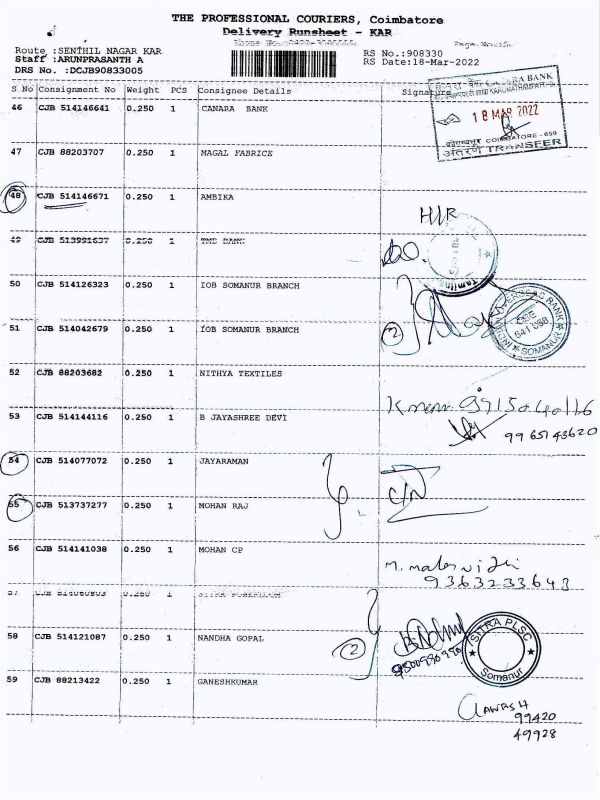 THE PROFESSIONAL COURIERS, Coimbatore
Delivery Runsheet - KAR
Route :SENTHIL NAGAR KAR
Staff :ARUNPRASANTH A
DRS No. :DCJB90833005
RS No.:908330
RS Date:18-Mar-2022
S No Consignment No Weight PCS Consignee Details Signature
46 CJB 514146641 0.250 1 CANARA BANK
CANARA BANK
18 MAR 2022
COIMBATORE - 659
अंतरण TRANSFER
47 CJB 88203707 0.250 1 MAGAL FABRICE
48 CJB 514146671 0.250 1 AMBIKA
H/R
49 CJB 513991637 0.250 1 TMB BANK
50 CJB 514126323 0.250 1 IOB SOMANUR BRANCH
51 CJB 514042679 0.250 1 IOB SOMANUR BRANCH
2
INDIAN OVERSEAS BANK
SOMANUR
52 CJB 88203682 0.250 1 NITHYA TEXTILES
53 CJB 514144116 0.250 1 B JAYASHREE DEVI
99651 43620
54 CJB 514077072 0.250 1 JAYARAMAN
C/N
55 CJB 513737277 0.250 1 MOHAN RAJ
56 CJB 514141038 0.250 1 MOHAN CP
9363233643
58 CJB 514121087 0.250 1 NANDHA GOPAL
2
SITRA PLSC
Somanur
59 CJB 88213422 0.250 1 GANESHKUMAR
99420
49928